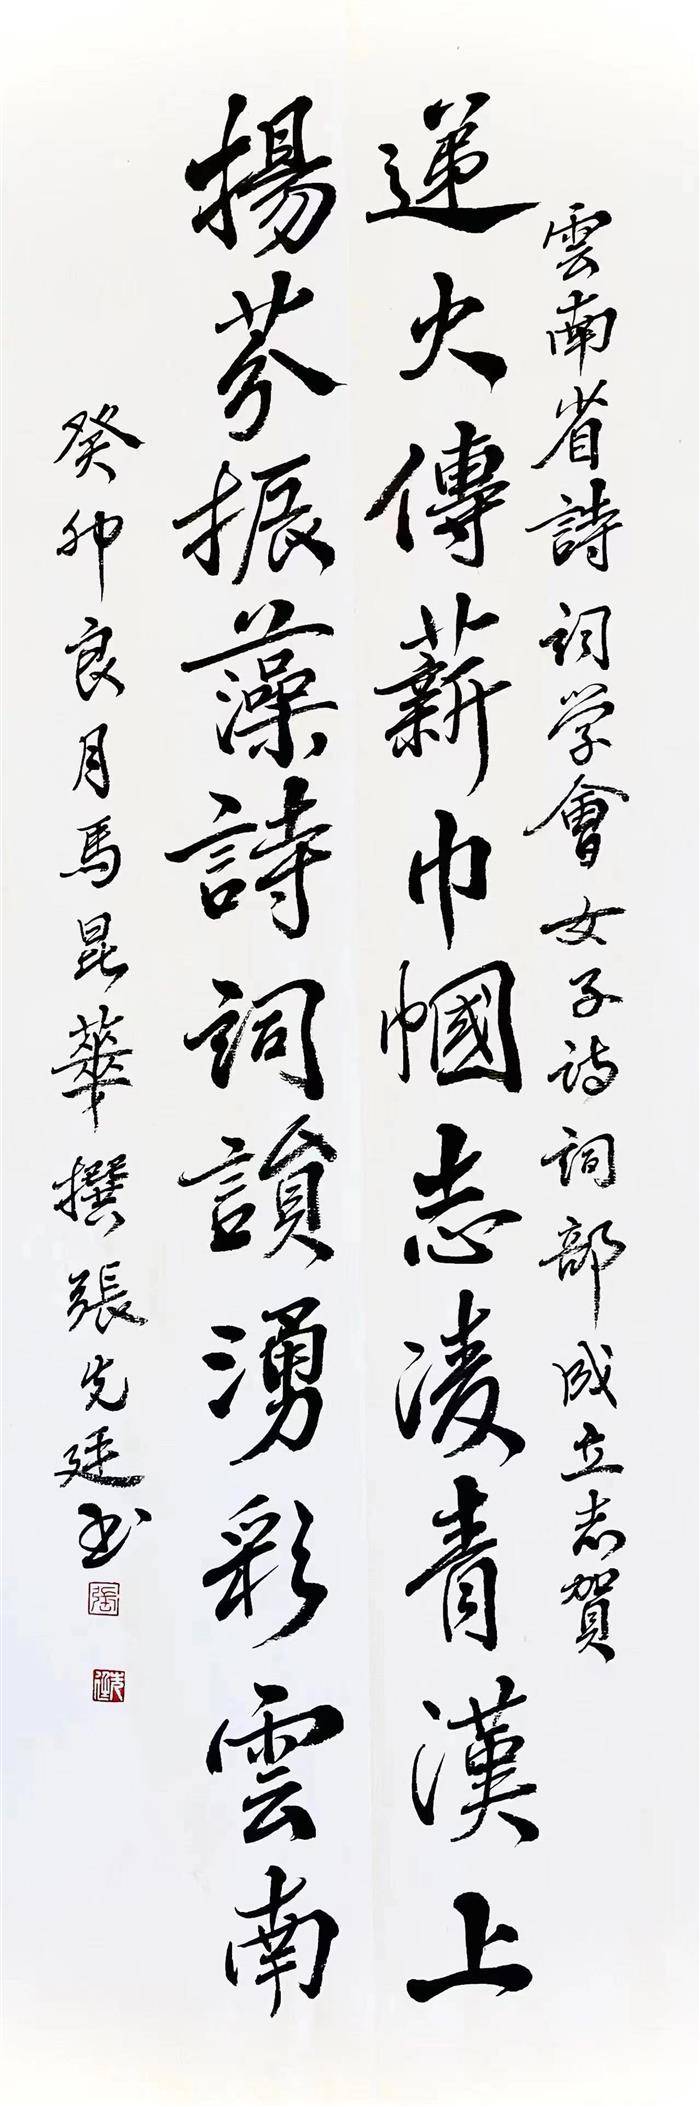 雲南省詩詞学會女子诗詞部成立志賀
递火傳薪巾幗志淩青漢上
揚芬振藻詩詞韻湧彩雲南
癸卯良月馬昆華撰張先廷书
張